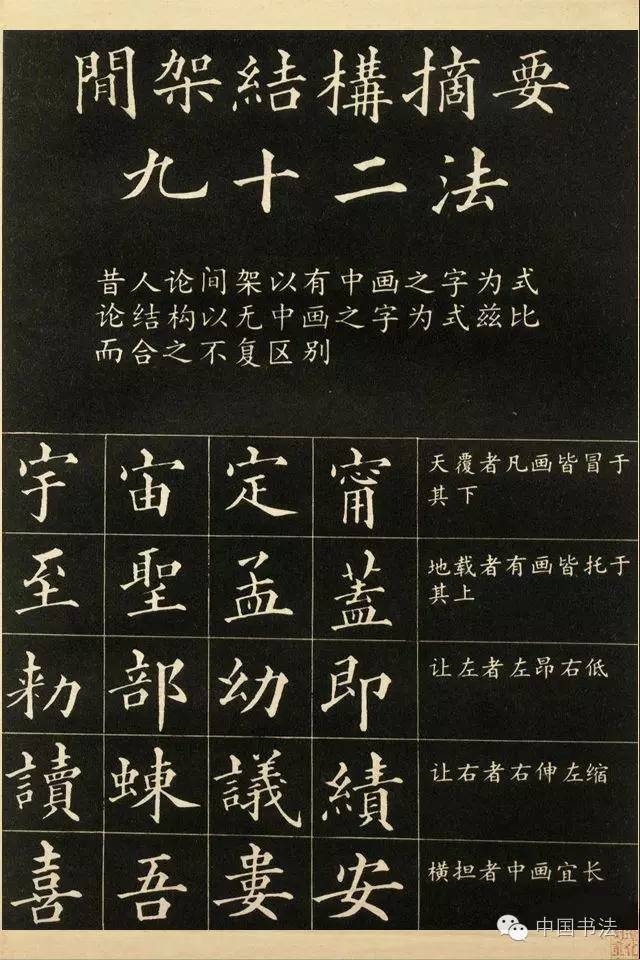 閒架結構摘要
九十二法
昔人论间架以有中画之字为式
论结构以无中画之字为式兹比
而合之不复区别
宇宙定甯
天覆者凡画皆冒于
其下
至聖孟蓋
地载者有画皆托于
其上
勅部幼即
让左者左昂右低
讀蝀議績
让右者右伸左缩
喜吾婁安
横担者中画宜长
中国书法